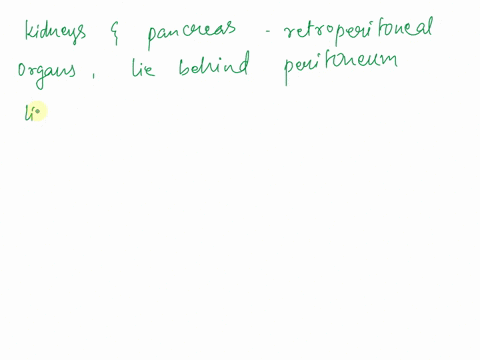 kidneys & pancreas - retroperitoneal
organs, lie behind peritoneum
li